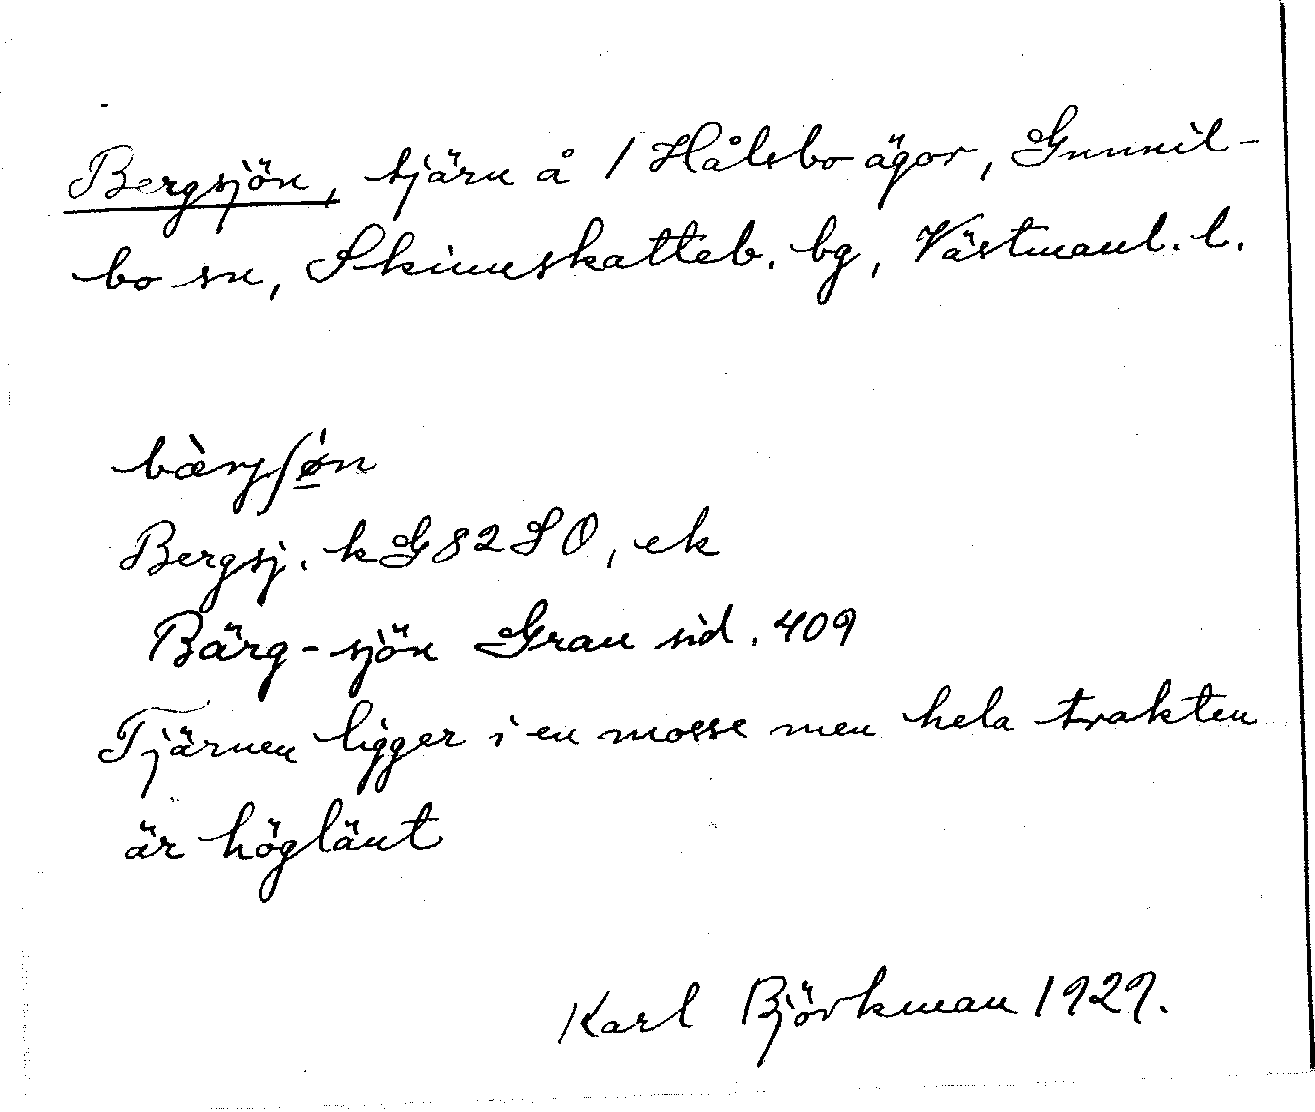 Bergsjön, tjärn å 1 Hålsbo ägor, Gunnil-
bo sn, Skinnskatteb. bg, Västmanl. l.
bàrjʃø̀n
Bergsj. kG82SO, ek
Bärg-sjön Grau sid. 409
Tjärnen ligger i en mosse men hela trakten
är höglänt
Karl Björkman 1929.